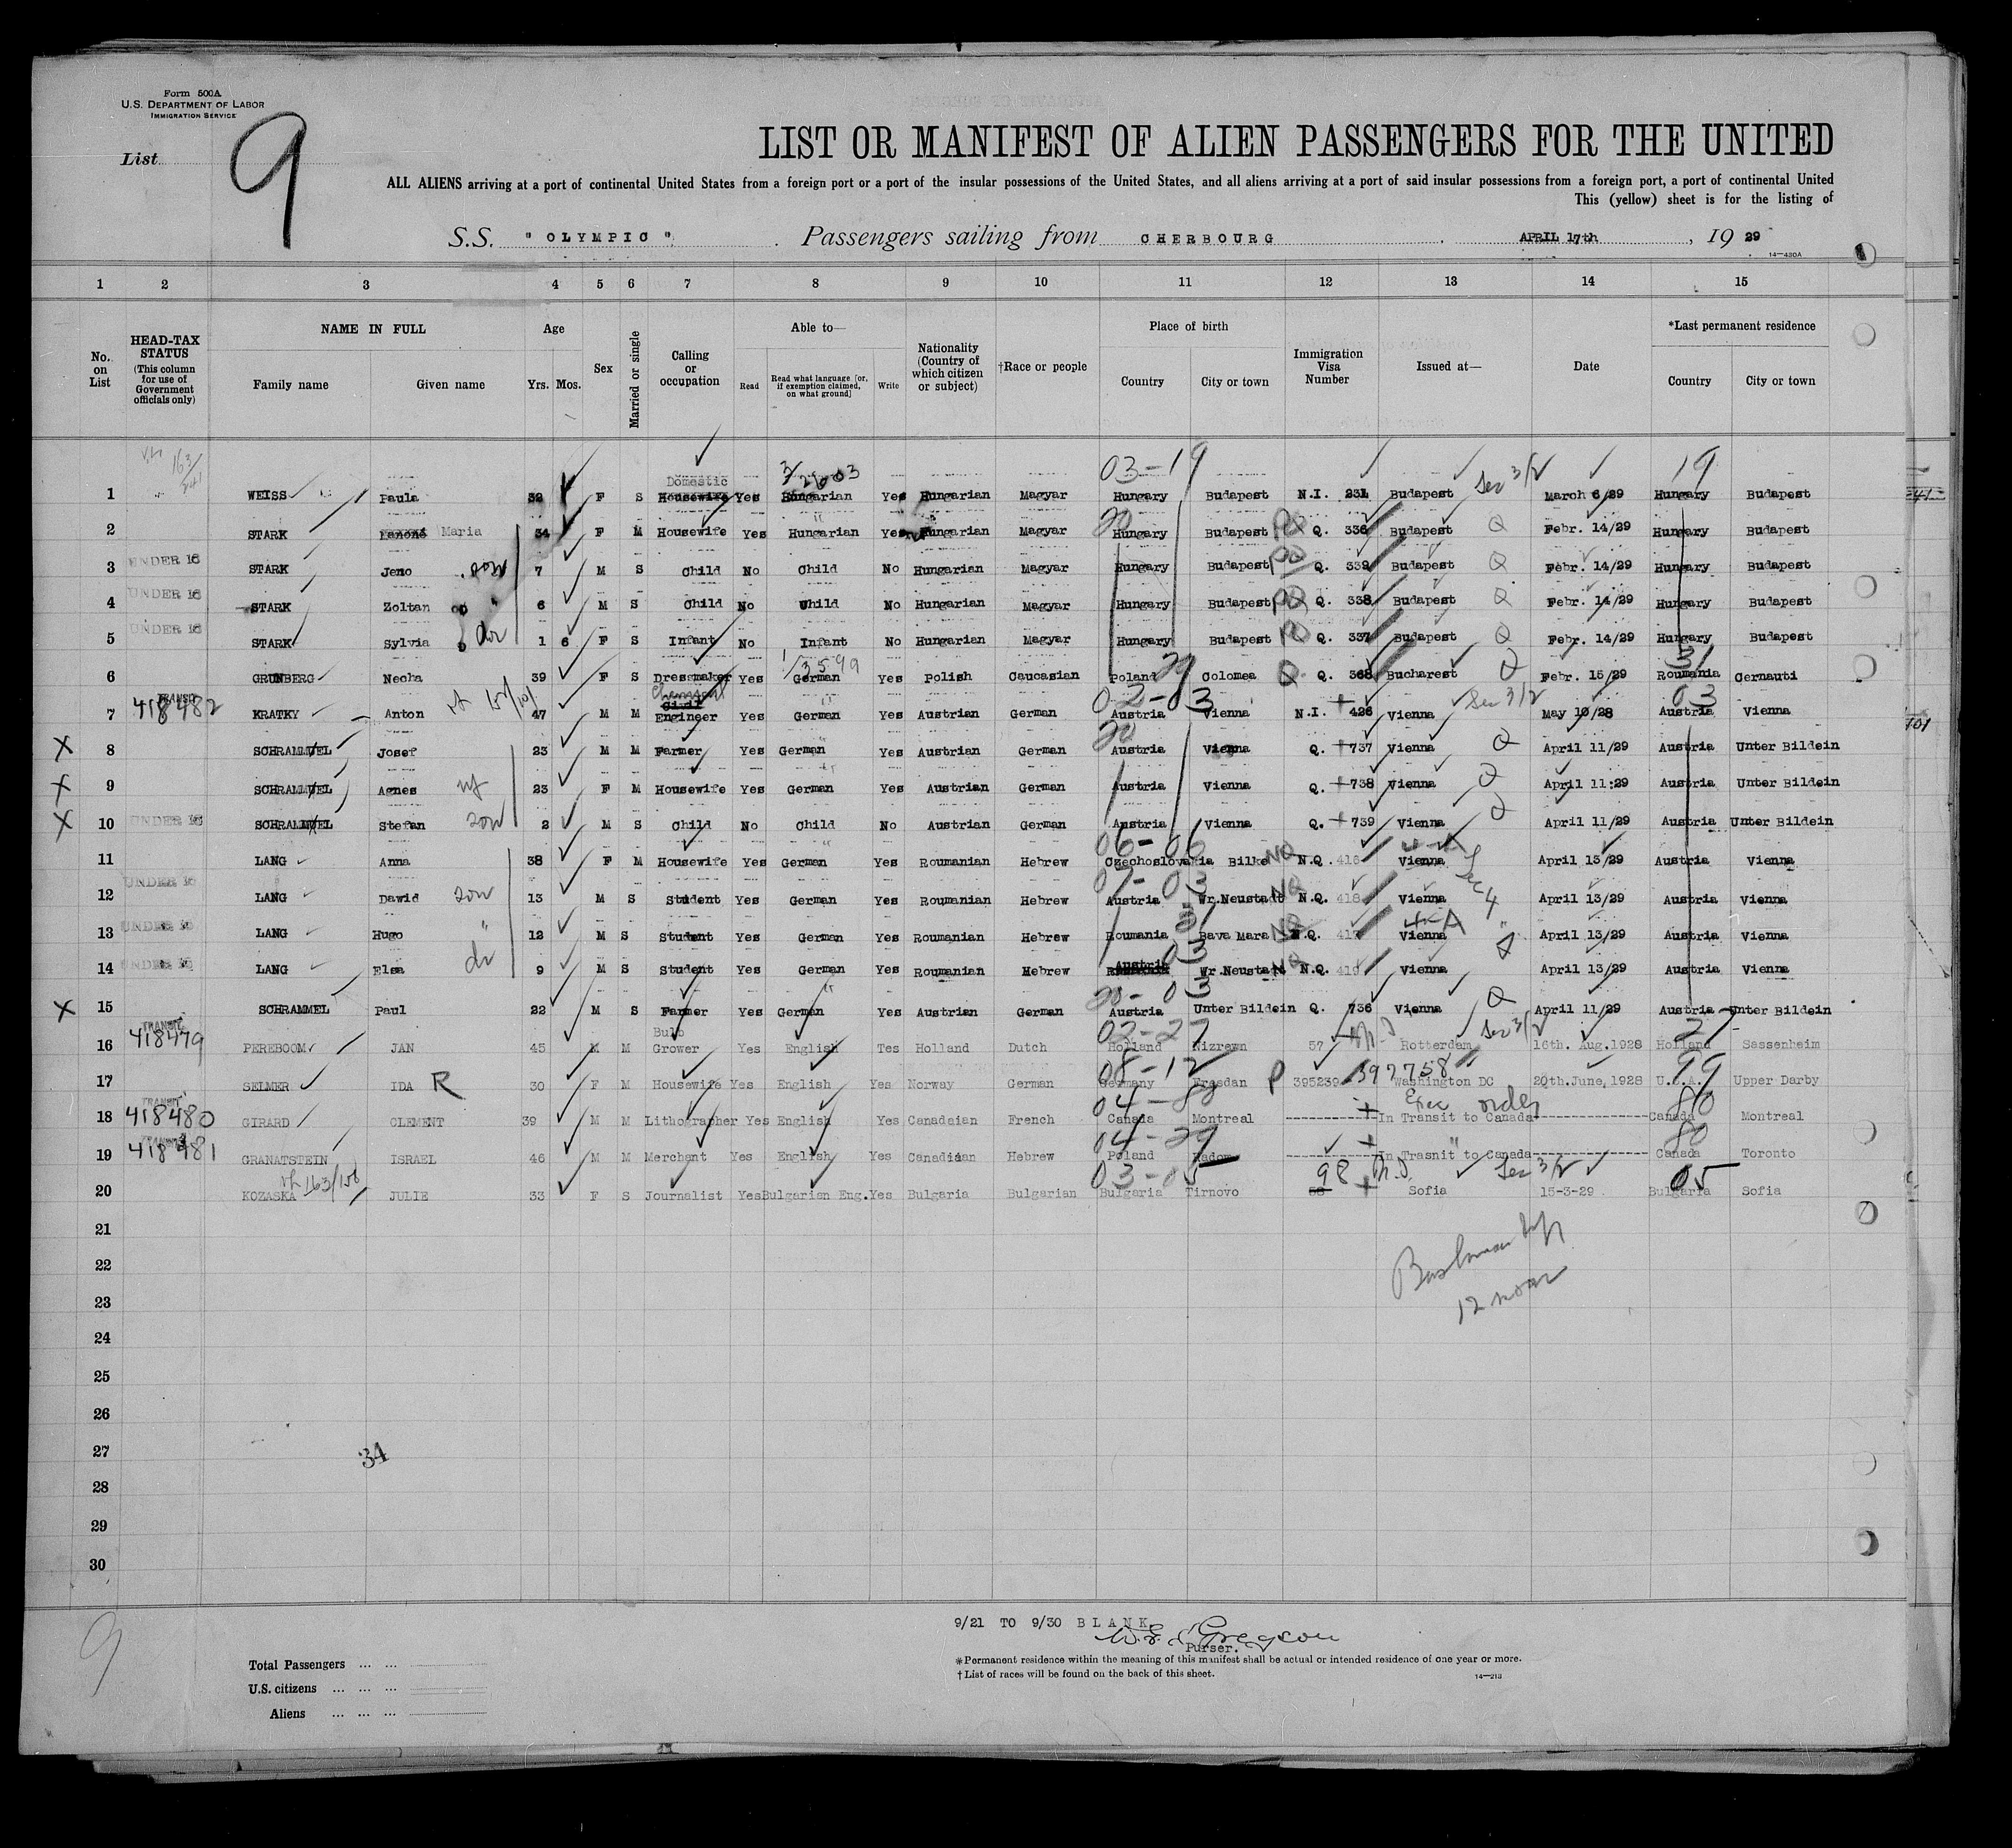 Form 500A
U.S. DEPARTMENT OF LABOR
IMMIGRATION SERVICE
List 9
LIST OR MANIFEST OF ALIEN PASSENGERS FOR THE UNITED
ALL ALIENS arriving at a port of continental United States from a foreign port or a port of the insular possessions of the United States, and all aliens arriving at a port of said insular possessions from a foreign port, a port of continental United
This (yellow) sheet is for the listing of
S.S. "OLYMPIC" Passengers sailing from CHERBOURG APRIL 17th, 1929
14—430A
1 2 3 4 5 6 7 8 9 10 11 12 13 14 15
No. on List
HEAD-TAX STATUS (This column for use of Government officials only)
NAME IN FULL
Family name Given name
Age
Yrs. Mos.
Sex
Married or single
Calling or occupation
Able to—
Read Read what language [or, if exemption claimed, on what ground] Write
Nationality (Country of which citizen or subject)
†Race or people
Place of birth
Country City or town
Immigration Visa Number
Issued at—
Date
*Last permanent residence
Country City or town
03-19 Sec 3/2 19
1 WEISS Paula 32 F S Domestic Housewife Yes Hungarian Yes Hungarian Magyar Hungary Budapest N.I. 231 Budapest March 6/29 Hungary Budapest
2 STARK Maria 34 F M Housewife Yes Hungarian Yes Hungarian Magyar Hungary Budapest Q. 336 Budapest Q Febr. 14/29 Hungary Budapest
3 UNDER 16 STARK Jeno son 7 M S Child No Child No Hungarian Magyar Hungary Budapest Q. 339 Budapest Q Febr. 14/29 Hungary Budapest
4 UNDER 16 STARK Zoltan " 6 M S Child No Child No Hungarian Magyar Hungary Budapest Q. 338 Budapest Q Febr. 14/29 Hungary Budapest
5 UNDER 16 STARK Sylvia dr 1 6 F S Infant No Infant No Hungarian Magyar Hungary Budapest Q. 337 Budapest Q Febr. 14/29 Hungary Budapest
6 GRUNBERG Necha 39 F S Dressmaker Yes German Yes Polish Caucasian Poland Colomea Q. 368 Bucharest Q Febr. 15/29 Roumania Cernauti
02-03 Sec 3/2 03
7 TRANSIT 418482 KRATKY Anton 47 M M Chemical Civil Engineer Yes German Yes Austrian German Austria Vienna N.I. 426 Vienna May 10/28 Austria Vienna
8 SCHRAMMEL Josef 23 M M Farmer Yes German Yes Austrian German Austria Vienna Q. 737 Vienna Q April 11/29 Austria Unter Bildein
9 SCHRAMMEL Agnes wf 23 F M Housewife Yes German Yes Austrian German Austria Vienna Q. 738 Vienna Q April 11:29 Austria Unter Bildein
10 UNDER 16 SCHRAMMEL Stefan son 2 M S Child No Child No Austrian German Austria Vienna Q. 739 Vienna Q April 11/29 Austria Unter Bildein
06-06
11 LANG Anna 38 F M Housewife Yes German Yes Roumanian Hebrew Czechoslovakia Bilke NQ N.Q. 416 Vienna Sec 4 April 13/29 Austria Vienna
12 UNDER 16 LANG Dawid son 13 M S Student Yes German Yes Roumanian Hebrew Austria Wr.Neustadt NQ N.Q. 418 Vienna April 13/29 Austria Vienna
13 UNDER 16 LANG Hugo " 12 M S Student Yes German Yes Roumanian Hebrew Roumania Bava Mara NQ N.Q. 417 Vienna April 13/29 Austria Vienna
14 UNDER 16 LANG Elsa dr 9 M S Student Yes German Yes Roumanian Hebrew Austria Wr.Neustadt NQ N.Q. 419 Vienna April 13/29 Austria Vienna
20-03
15 SCHRAMMEL Paul 22 M S Farmer Yes German Yes Austrian German Austria Unter Bildein Q. 736 Vienna Q April 11/29 Austria Unter Bildein
02-27 Sec 3/2 27
16 TRANSIT 418479 PEREBOOM JAN 45 M M Bulb Grower Yes English Tes Holland Dutch Holland Nizrewn 57 Rotterdam 16th. Aug.1928 Holland Sassenheim
08-12 99
17 SELMER IDA R 30 F M Housewife Yes English Yes Norway German Germany Dresdan P 395239 397758 Washington DC 20th.June,1928 U.S.A. Upper Darby
04-80 Exec order 80
18 TRANSIT 418480 GIRARD CLEMENT 39 M M Lithographer Yes English Yes Canadaian French Canada Montreal In Transit to Canada Canada Montreal
04-29 " 80
19 TRANSIT 418481 GRANATSTEIN ISRAEL 46 M M Merchant Yes English Yes Canadian Hebrew Poland Radom In Trasnit to Canada Canada Toronto
03-05 98 Sec 3/2 05
20 KOZASKA 163/156 JULIE 33 F S Journalist Yes Bulgarian Eng. Yes Bulgaria Bulgarian Bulgaria Tirnovo Sofia 15-3-29 Bulgaria Sofia
21
22
23
24
25
26
27
28
29
30
12 noon
34
9
9/21 TO 9/30 BLANK
Purser.
*Permanent residence within the meaning of this manifest shall be actual or intended residence of one year or more.
†List of races will be found on the back of this sheet.
14—213
Total Passengers
U.S. citizens
Aliens